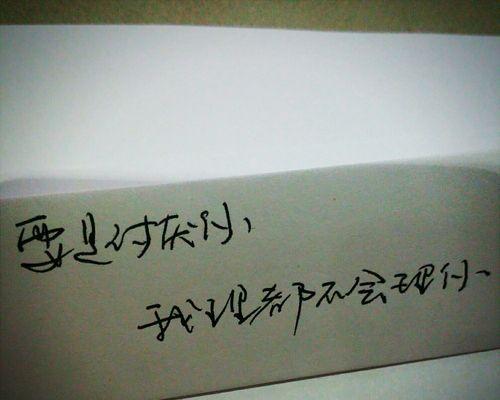 要是讨厌你、
我理都不会理你、